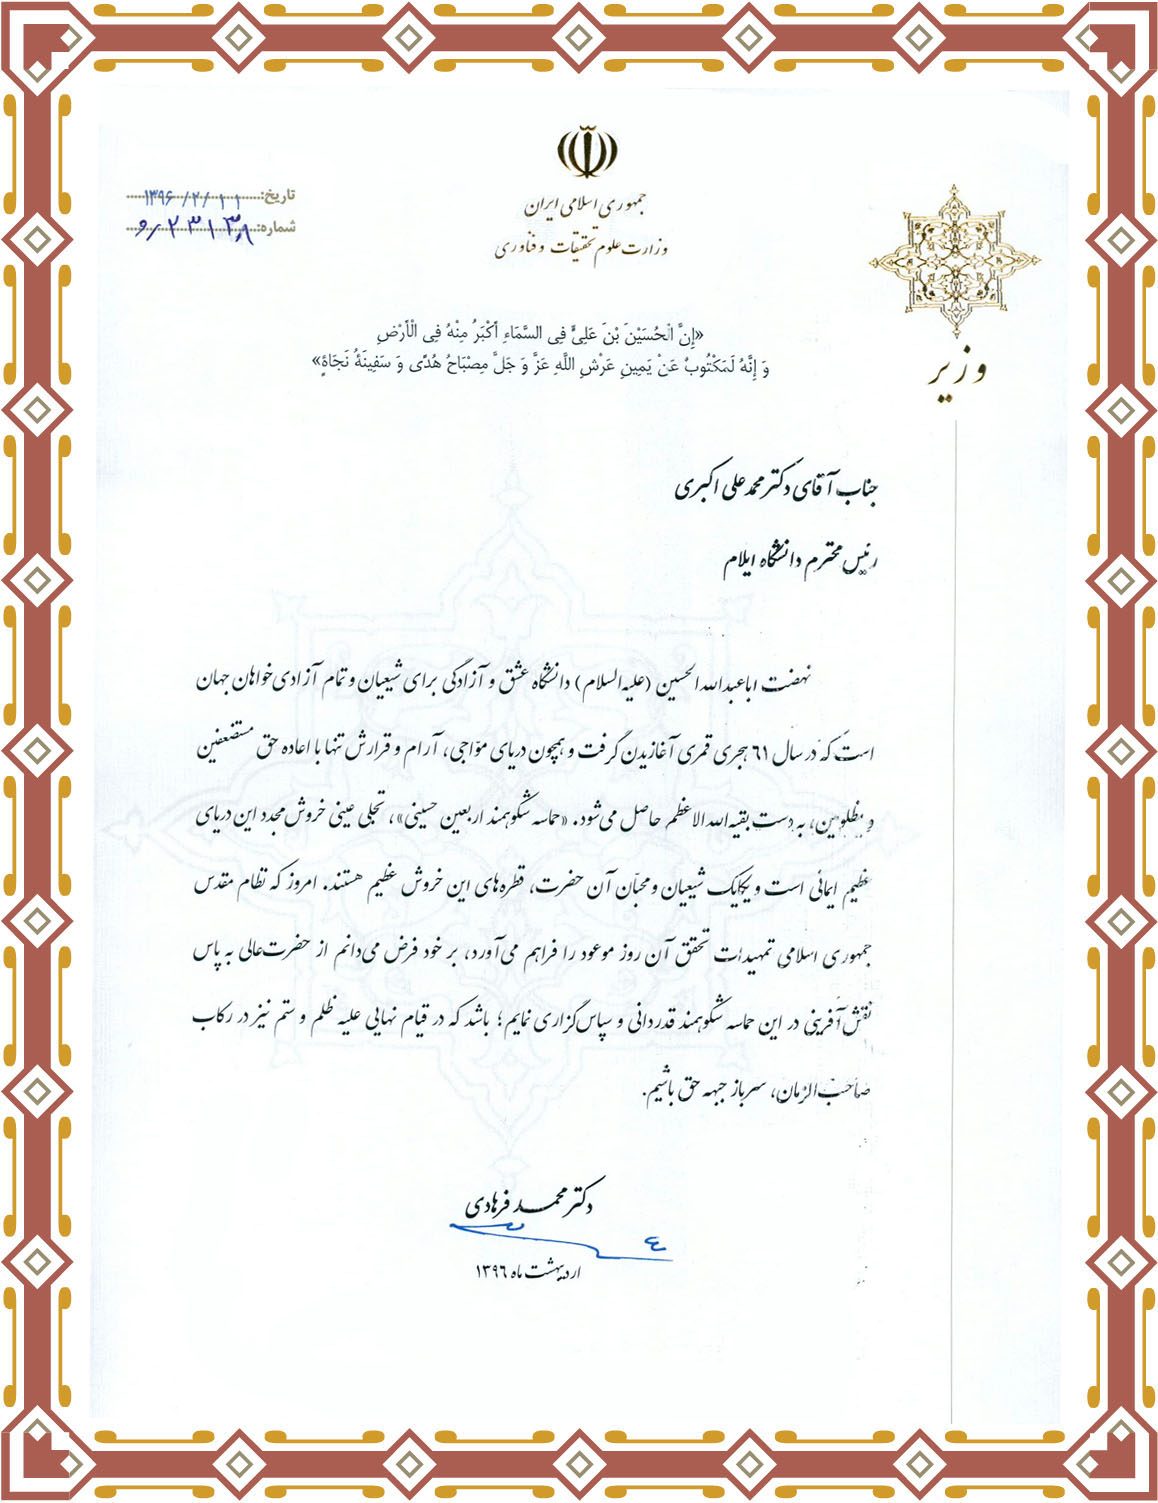 جمهوری اسلامی ایران
وزارت علوم تحقیقات و فناوری
تاریخ: ۱۳۹۶/۲/۱۱
شماره:
وزیر
«إِنَّ الْحُسَيْنَ بْنَ عَلِيٍّ فِي السَّمَاءِ أَكْبَرُ مِنْهُ فِي الْأَرْضِ
وَ إِنَّهُ لَمَكْتُوبٌ عَنْ يَمِينِ عَرْشِ اللَّهِ عَزَّ وَ جَلَّ مِصْبَاحُ هُدًى وَ سَفِينَةُ نَجَاةٍ»
جناب آقای دکتر محمدعلی اکبری
رئیس محترم دانشگاه ایلام
نهضت اباعبدالله الحسین (علیه السلام) دانشگاه عشق و آزادگی برای شیعیان و تمام آزادی‌خواهان جهان
است که در سال ۶۱ هجری قمری آغازیدن گرفت و همچون دریای موّاجی، آرام و قرارش تنها با اعاده حق مستضعفین
و مظلومین، به دست بقیه الله الاعظم حاصل می‌شود. «حماسه شکوهمند اربعین حسینی»، تجلی عینی خروش مجدد این دریای
عظیم ایمانی است و یکایک شیعیان و محبّان آن حضرت، قطره‌های این خروش عظیم هستند. امروز که نظام مقدس
جمهوری اسلامی تمهیدات تحقق آن روز موعود را فراهم می‌آورد، بر خود فرض می‌دانم از حضرت‌عالی به پاس
نقش‌آفرینی در این حماسه شکوهمند قدردانی و سپاس‌گزاری نمایم؛ باشد که در قیام نهایی علیه ظلم و ستم نیز در رکاب
صاحب‌الزمان، سرباز جبهه حق باشیم.
دکتر محمد فرهادی
اردیبهشت ماه ۱۳۹۶